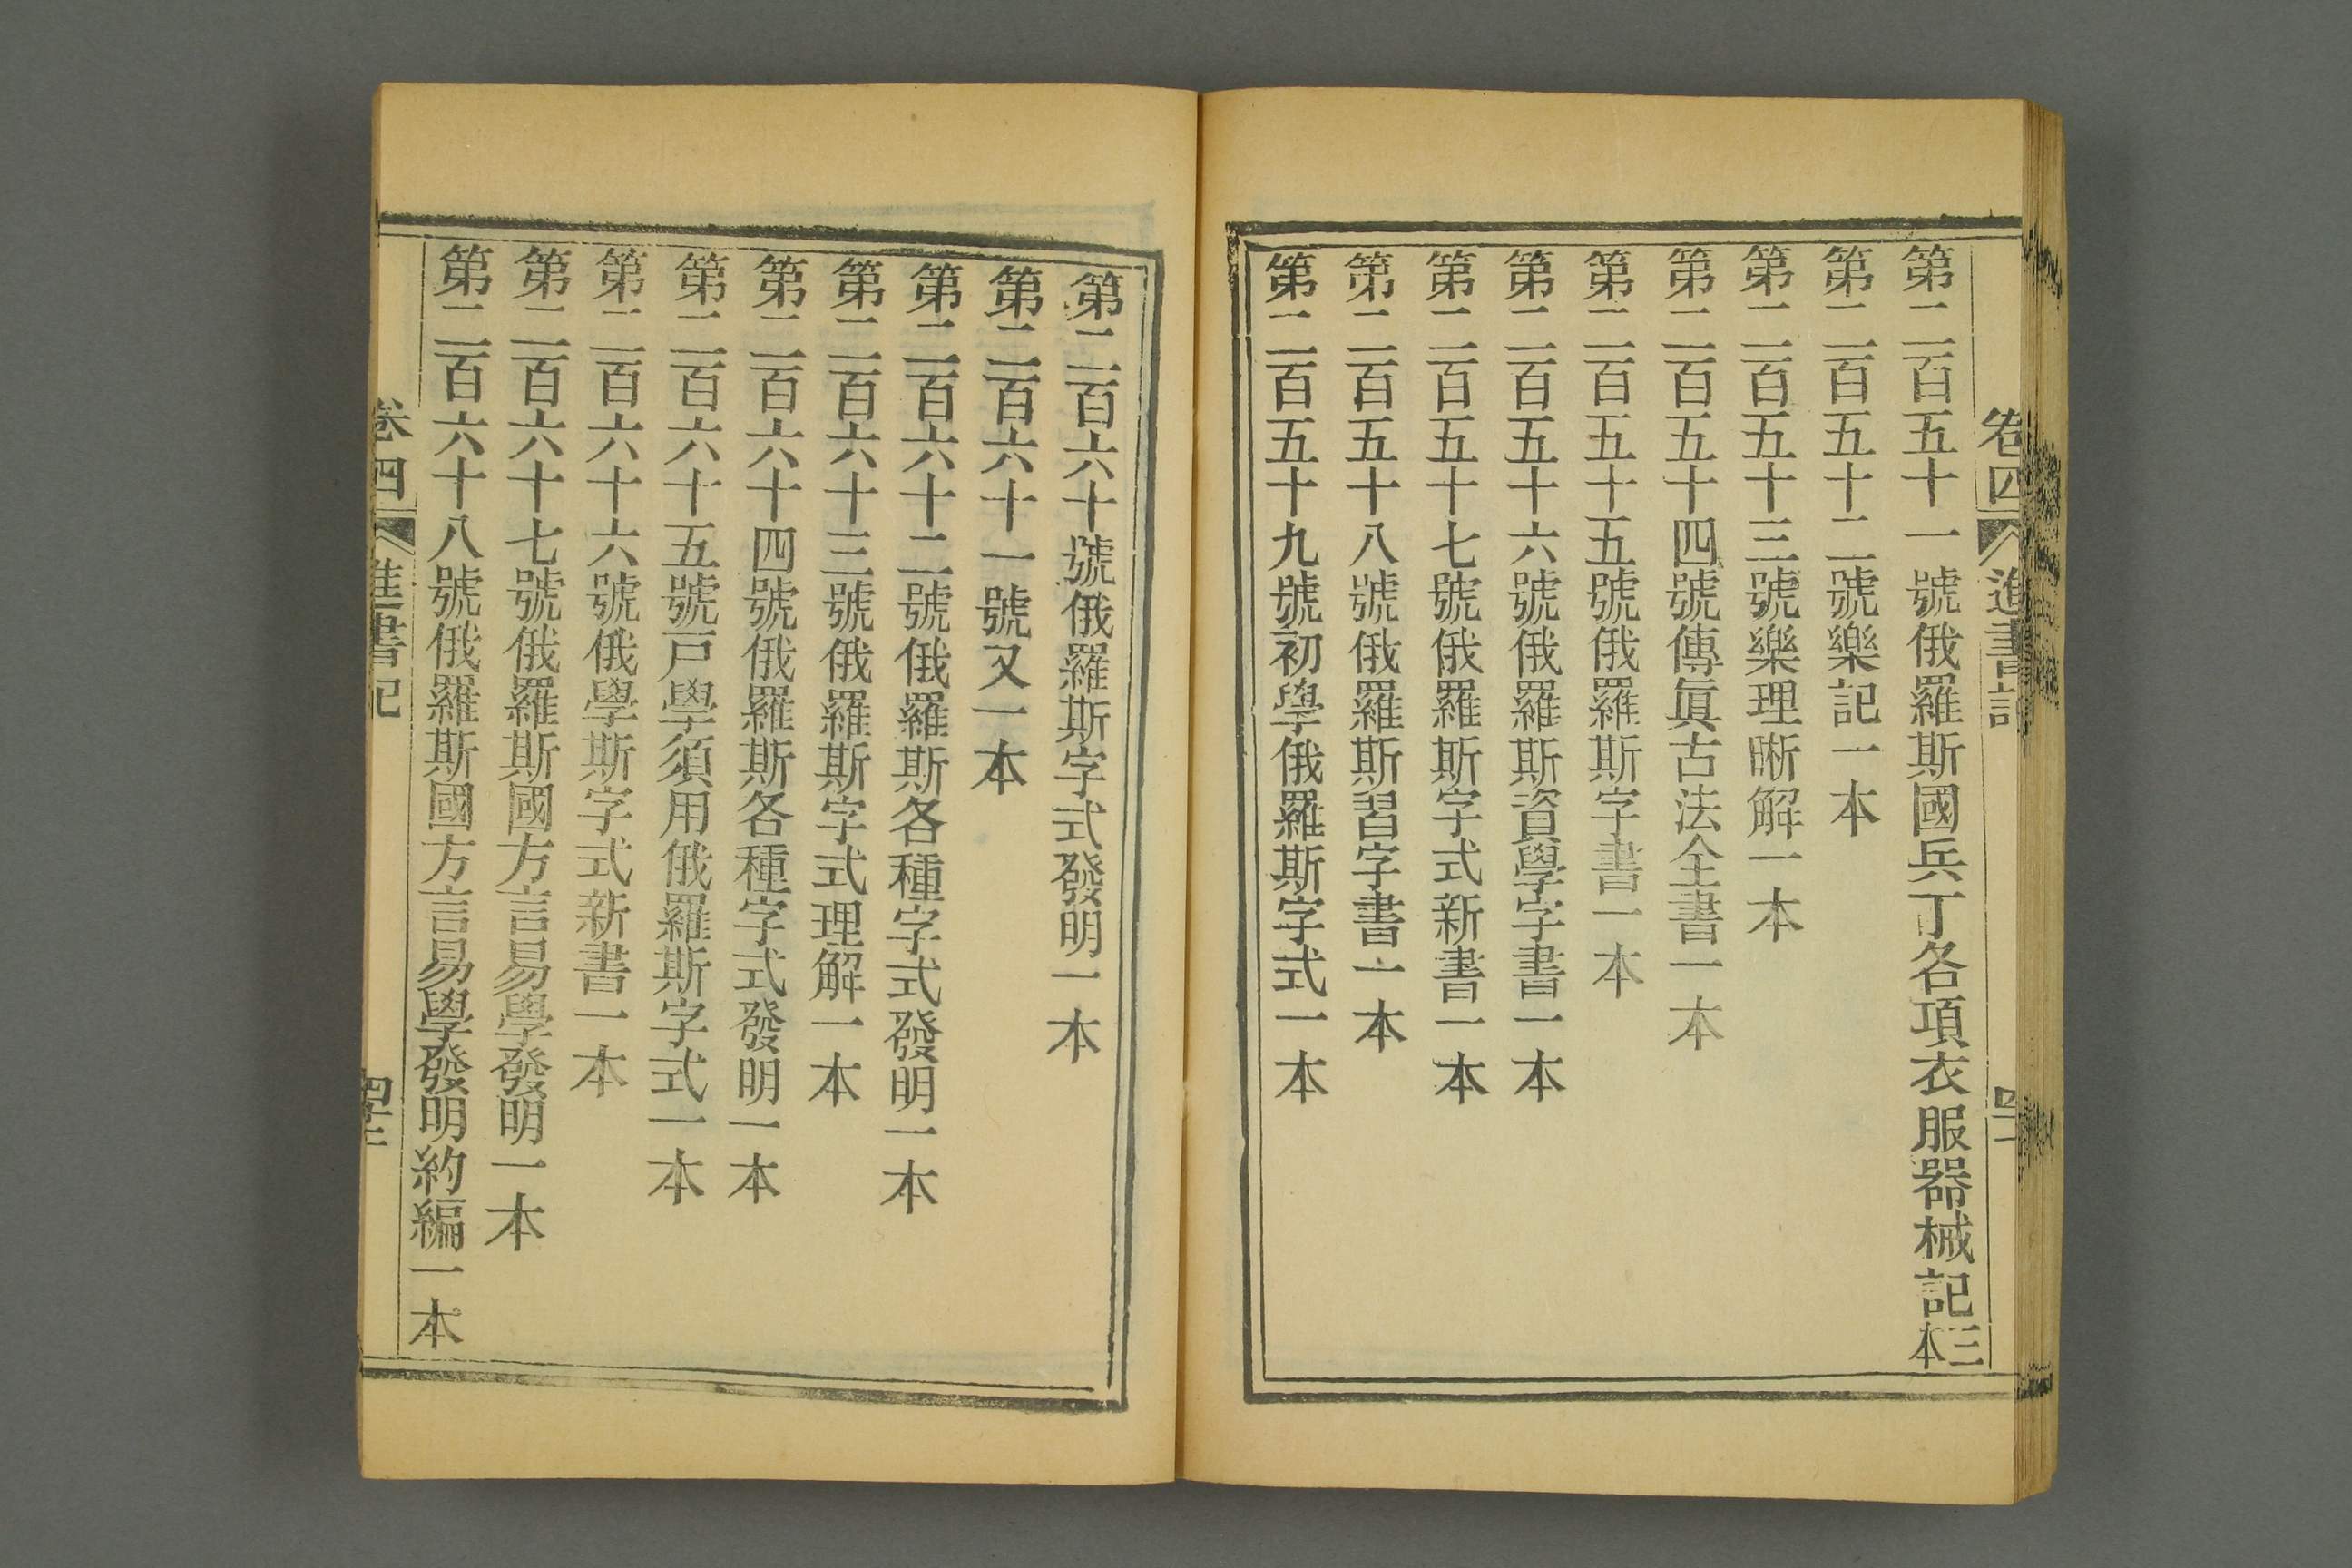 卷四 進書記 四一
第二百五十一號俄羅斯國兵丁各項衣服器械記三本
第二百五十二號樂記一本
第二百五十三號樂理晰解一本
第二百五十四號傳眞古法全書一本
第二百五十五號俄羅斯字書一本
第二百五十六號俄羅斯資學字書一本
第二百五十七號俄羅斯字式新書一本
第二百五十八號俄羅斯習字書一本
第二百五十九號初學俄羅斯字式一本
第二百六十號俄羅斯字式發明一本
第二百六十一號又一本
第二百六十二號俄羅斯各種字式發明一本
第二百六十三號俄羅斯字式理解一本
第二百六十四號俄羅斯各種字式發明一本
第二百六十五號戸學須用俄羅斯字式一本
第二百六十六號俄學斯字式新書一本
第二百六十七號俄羅斯國方言易學發明一本
第二百六十八號俄羅斯國方言易學發明約編一本
卷四 進書記